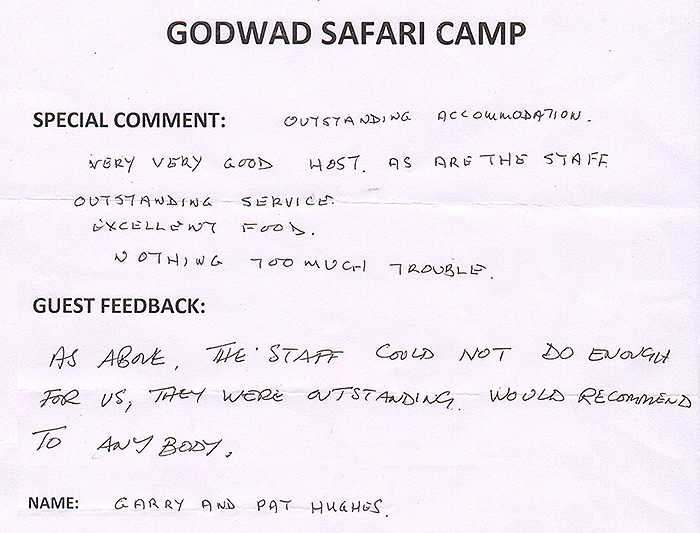 GODWAD SAFARI CAMP
SPECIAL COMMENT: OUTSTANDING ACCOMMODATION.
VERY VERY GOOD HOST. AS ARE THE STAFF
OUTSTANDING SERVICE.
EXCELLENT FOOD.
NOTHING TOO MUCH TROUBLE.
GUEST FEEDBACK:
AS ABOVE, THE STAFF COULD NOT DO ENOUGH
FOR US, THEY WERE OUTSTANDING. WOULD RECOMMEND
TO ANY BODY.
NAME: GARRY AND PAT HUGHES.